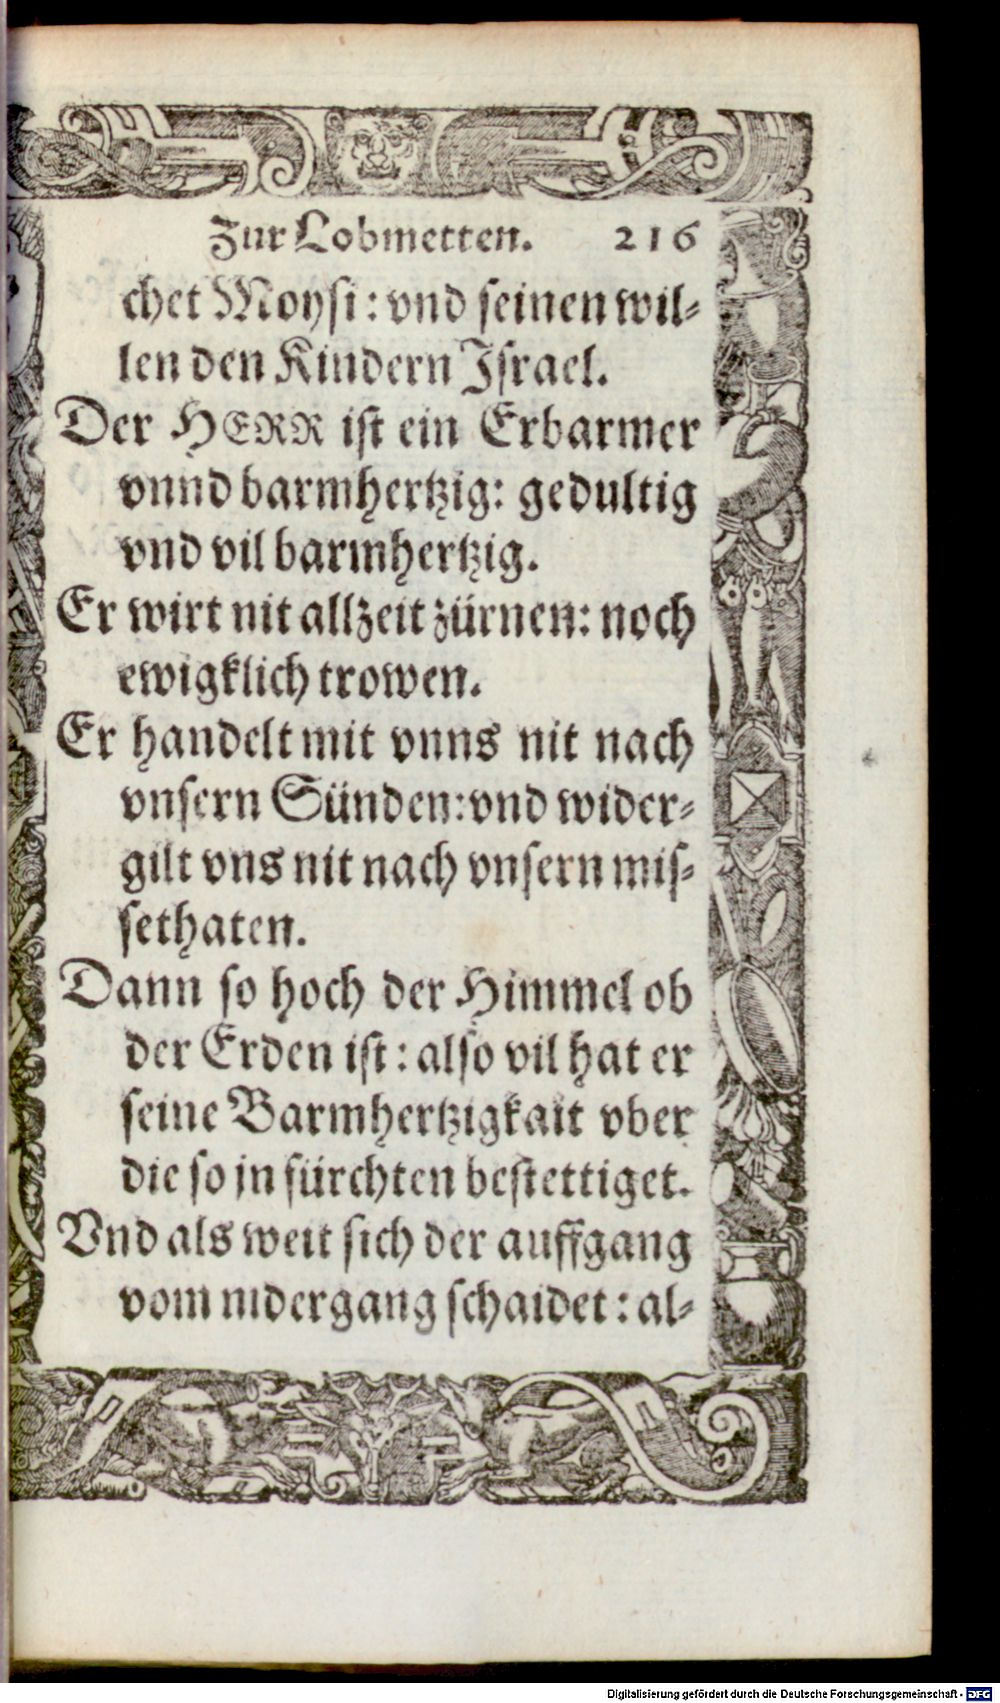 Zur Lobmetten. 216
chet Moysi: vnd seinen wil-
len den Kindern Israel.
Der HERR ist ein Erbarmer
vnnd barmhertzig: gedultig
vnd vil barmhertzig.
Er wirt nit allzeit zürnen: noch
ewigklich trowen.
Er handelt mit vnns nit nach
vnsern Sünden: vnd wider-
gilt vns nit nach vnsern mis-
sethaten.
Dann so hoch der Himmel ob
der Erden ist: also vil hat er
seine Barmhertzigkait vber
die so jn fürchten bestettiget.
Vnd als weit sich der auffgang
vom nidergang schaidet: al-
Digitalisierung gefördert durch die Deutsche Forschungsgemeinschaft - DFG